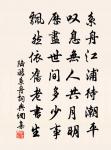 系舟江浦待潮平
叹息无人共月明
历尽世间多少事
飘然依旧老书生
陆游系舟诗词典网集